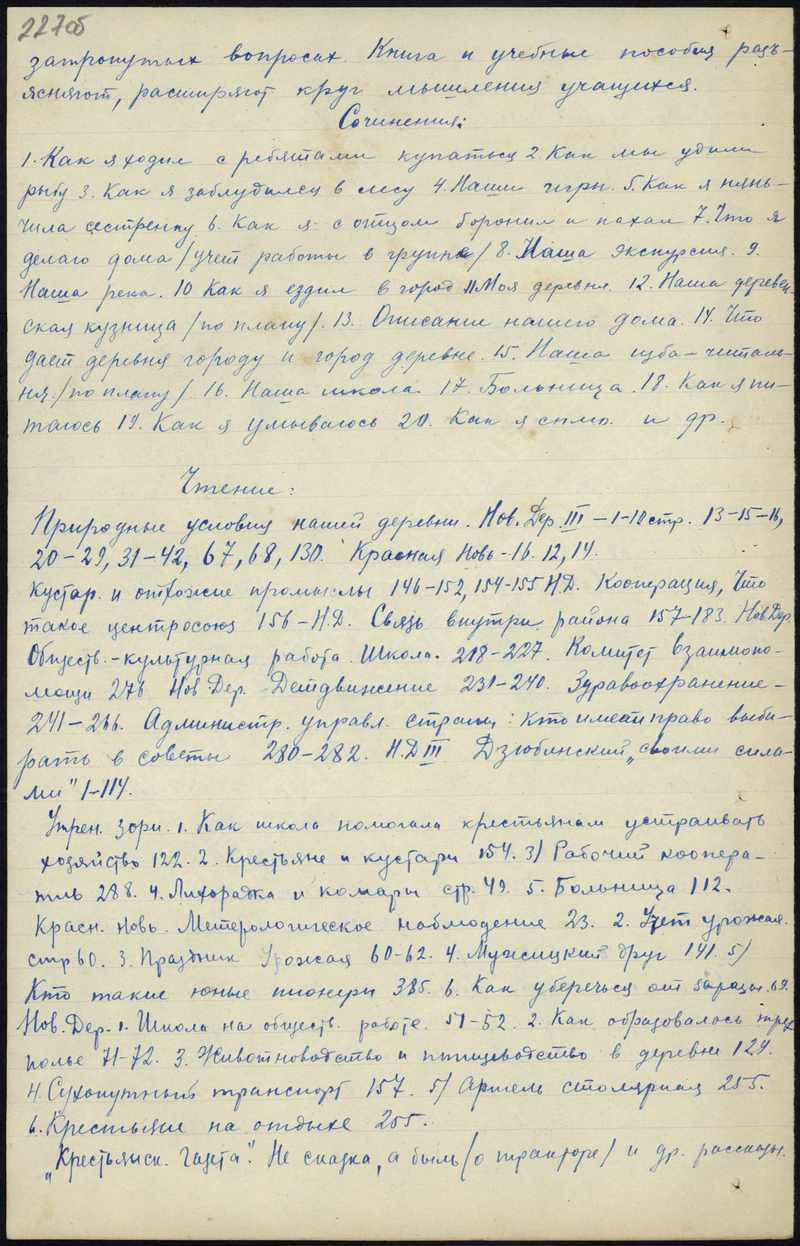 227об
затронутых вопросах. Книга и учебные пособия разъ-
ясняют, расширяют круг мышления учащихся.
Сочинения:
1. Как я ходил с ребятами купаться 2 Как мы удили
рыбу 3. Как я заблудился в лесу 4. Наши игры. 5. Как я нянь-
чила сестренку 6. Как я с отцом боронил и пахал 7. Что я
делаю дома /учет работы в группе/ 8. Наша экскурсия. 9.
Наша река. 10 Как я ездил в город 11 Моя деревня. 12. Наша деревен-
ская кузница /по плану/. 13. Описание нашего дома. 14. Что
дает деревня городу и город деревне. 15. Наша изба-читаль-
ня. /по плану/. 16. Наша школа 17. Больница. 18. Как я пи-
таюсь 19. Как я умываюсь 20. Как я сплю. и др.
Чтение:
Природные условия нашей деревни. Нов. Дер. III – 1-10 стр. 13-15-16,
20-29, 31-42, 67, 68, 130. Красная Новь - 16. 12, 14.
Кустар. и отхожие промыслы 146-152, 154-155 Н.Д. Кооперация, Что
такое центросоюз 156 - Н.Д. Связь внутри района 157-183. Нов. Дер.
Обществ.-культурная работа. Школа. 218-227. Комитет Взаимопо-
мощи 276 Нов. Дер. Детдвижение 231-240. Здравоохранение -
241-266. Администр. управл. страны: кто имеет право выби-
рать в советы 280-282. Н.Д III Дзюбинский „своими сила-
ми" 1-114.
Утрен. зори. 1. Как школа помогала крестьянам устраивать
хозяйство 122. 2. Крестьяне и кустари 154. 3) Рабочий коопера-
тив 288. 4. Лихорадка и комары стр. 49. 5. Больница 112.
Красн. Новь. Метерологическое наблюдение 23. 2. Учет урожая.
стр 60. 3. Праздник Урожая 60-62. 4. Мужицкий друг 141. 5)
Кто такие юные пионеры 385. 6. Как уберечься от заразы. 69.
Нов. Дер. 1. Школа на обществ. работе. 51-52. 2. Как образовалось трех
полье 71-72. 3. Животноводство и птицеводство в деревне 129.
4. Сухопутный транспорт 157. 5) Артель столярная 255.
6. Крестьяне на отдыхе 255.
„Крестьянск. Газета". Не сказка, а быль /о тракторе/ и др. рассказы.